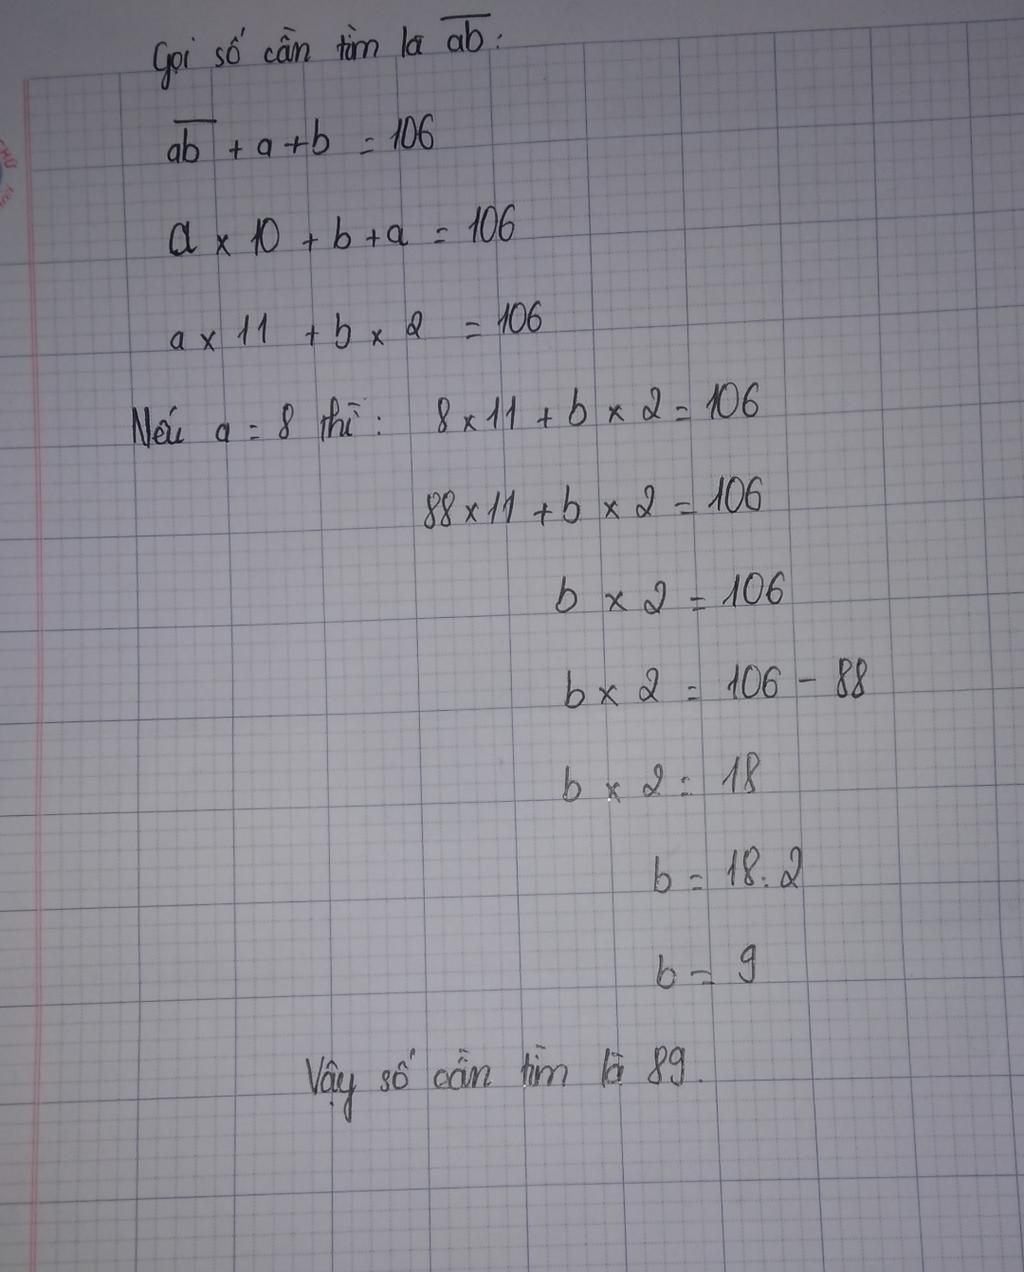 Gọi số cần tìm la a͞b:
a͞b + a + b = 106
a × 10 + b + a = 106
a × 11 + b × 2 = 106
Nếu a = 8 thì: 8 × 11 + b × 2 = 106
88 × 11 + b × 2 = 106
b × 2 = 106
b × 2 = 106 - 88
b × 2 = 18
b = 18 : 2
b = 9
Vậy số cần tìm là 89.